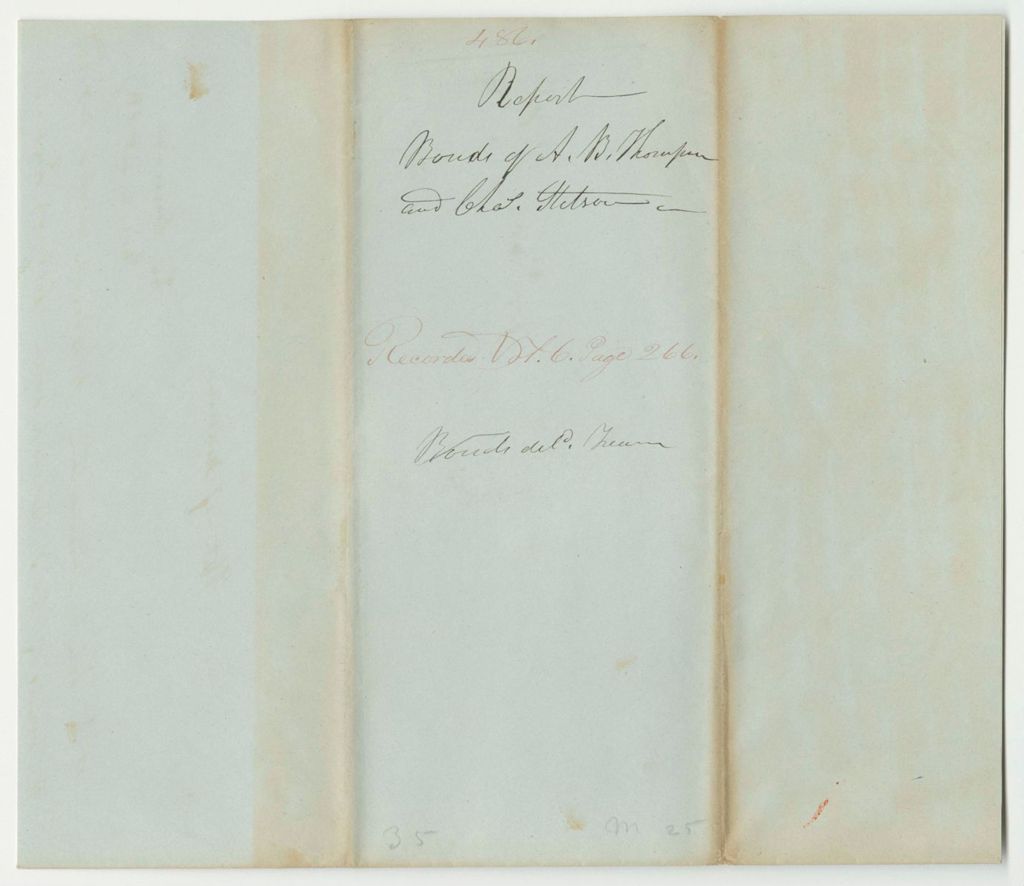 486.
Report
Bonds of A. B. Thompson
and Chas. Stetson
Recorded Vol. 6. Page 266.
Bonds deld.
35 M 25